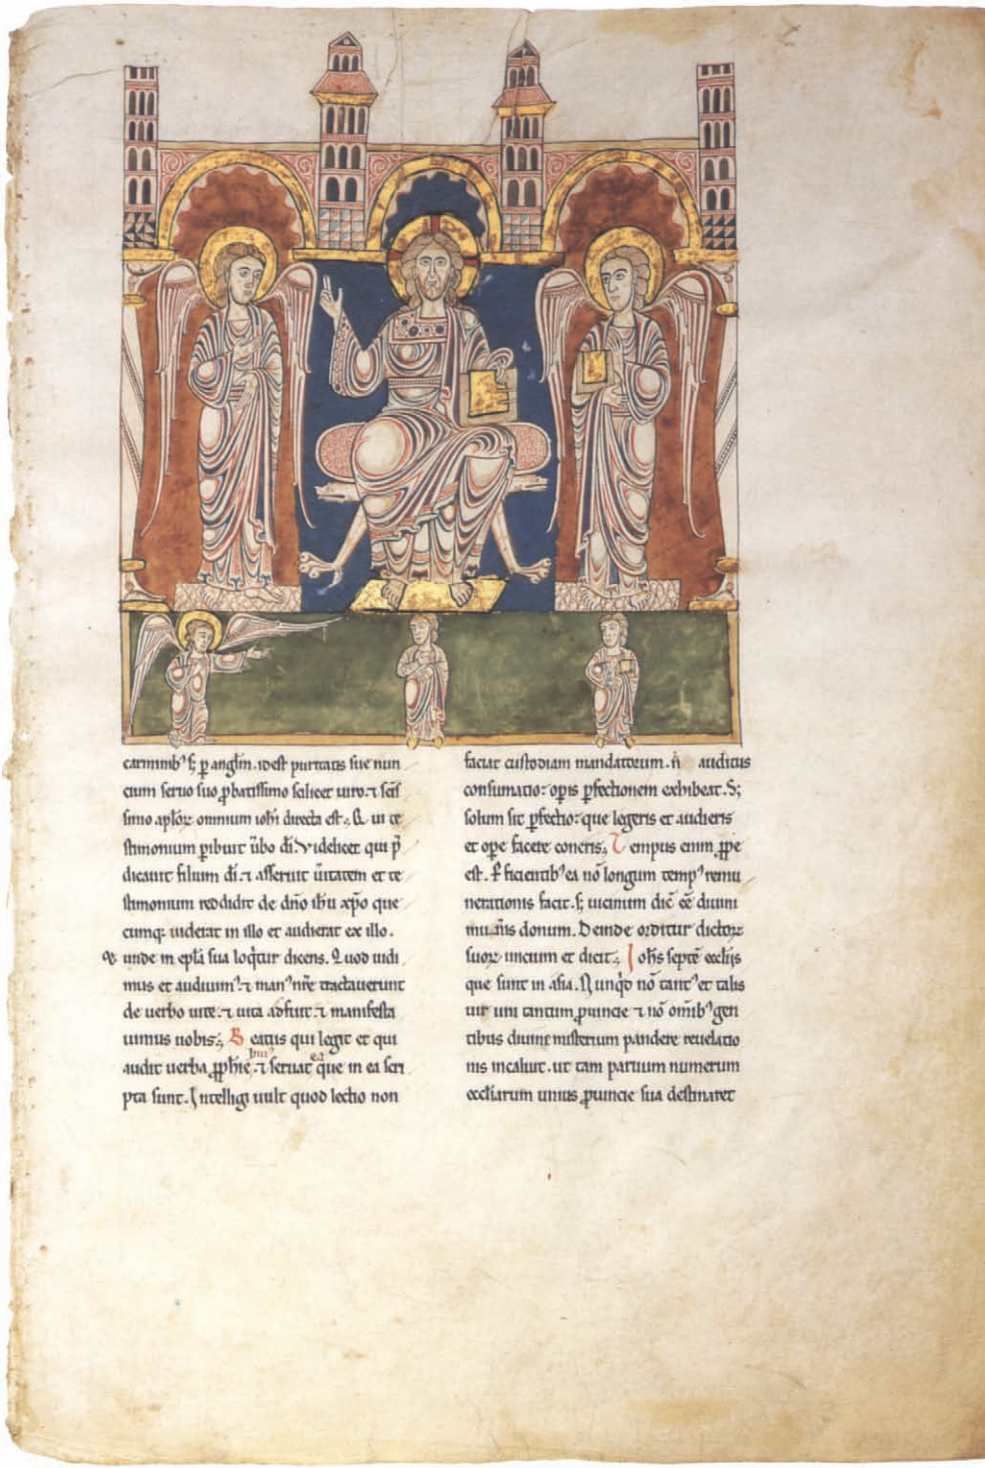 carminib᾽ s; p̱ angl̄m. idest puritatis sue nun
cium seruo suo ꝓbatissimo scilicet uiro. ⁊ scīs
simo apl̄oꝝ omnium ioh̄i directa est; Q ui te
stimonium p̱ibuit ūbo dī. Videlicet qui p̄
dicauit filium dī. ⁊ asseruit ūitatem et te
stimonium reddidit de dn̄o ih̄u xp̄o que
cumq; uiderat in illo et audierat ex illo.
unde in epl̄a sua loq̄tur dicens. Quod uidi
mus et audiuim᾽. ⁊ man᾽ nr̄e tractauerunt
de uerbo uite. ⁊ uita adfuit. ⁊ manifesta
uimus uobis; B eatus qui legit et qui
audit uerba ꝓph̄ie hui᾽ ⁊ seruat ea que in ea scri
pta sunt. Intelligi uult quod lectio non
faciat custodiam mandatorum. n̄ auditus
consumatio: opis ꝑfectionem exhibeat. S;
solum sit ꝑfectio: que legeris et audieris
et ope facere coneris; T empus enim ꝓpe
est. P̱ficientib᾽ ea nō longum temp᾽ remu
nerationis facit. s; uicinum diē eē diuini
muneris donum. Deinde orditur dictoꝝ
suoꝝ inicium et dicit; I oh̄s septē eccl̄iis
que sunt in asia. Nunq̄d nō tant᾽ et talis
uir uni tantum ꝓuincie ⁊ nō om̄ib᾽ gen
tibus diuini misterium pandere reuelatio
nis incaluit. ut tam paruum numerum
eccl̄iarum unius ꝓuincie sua destinaret